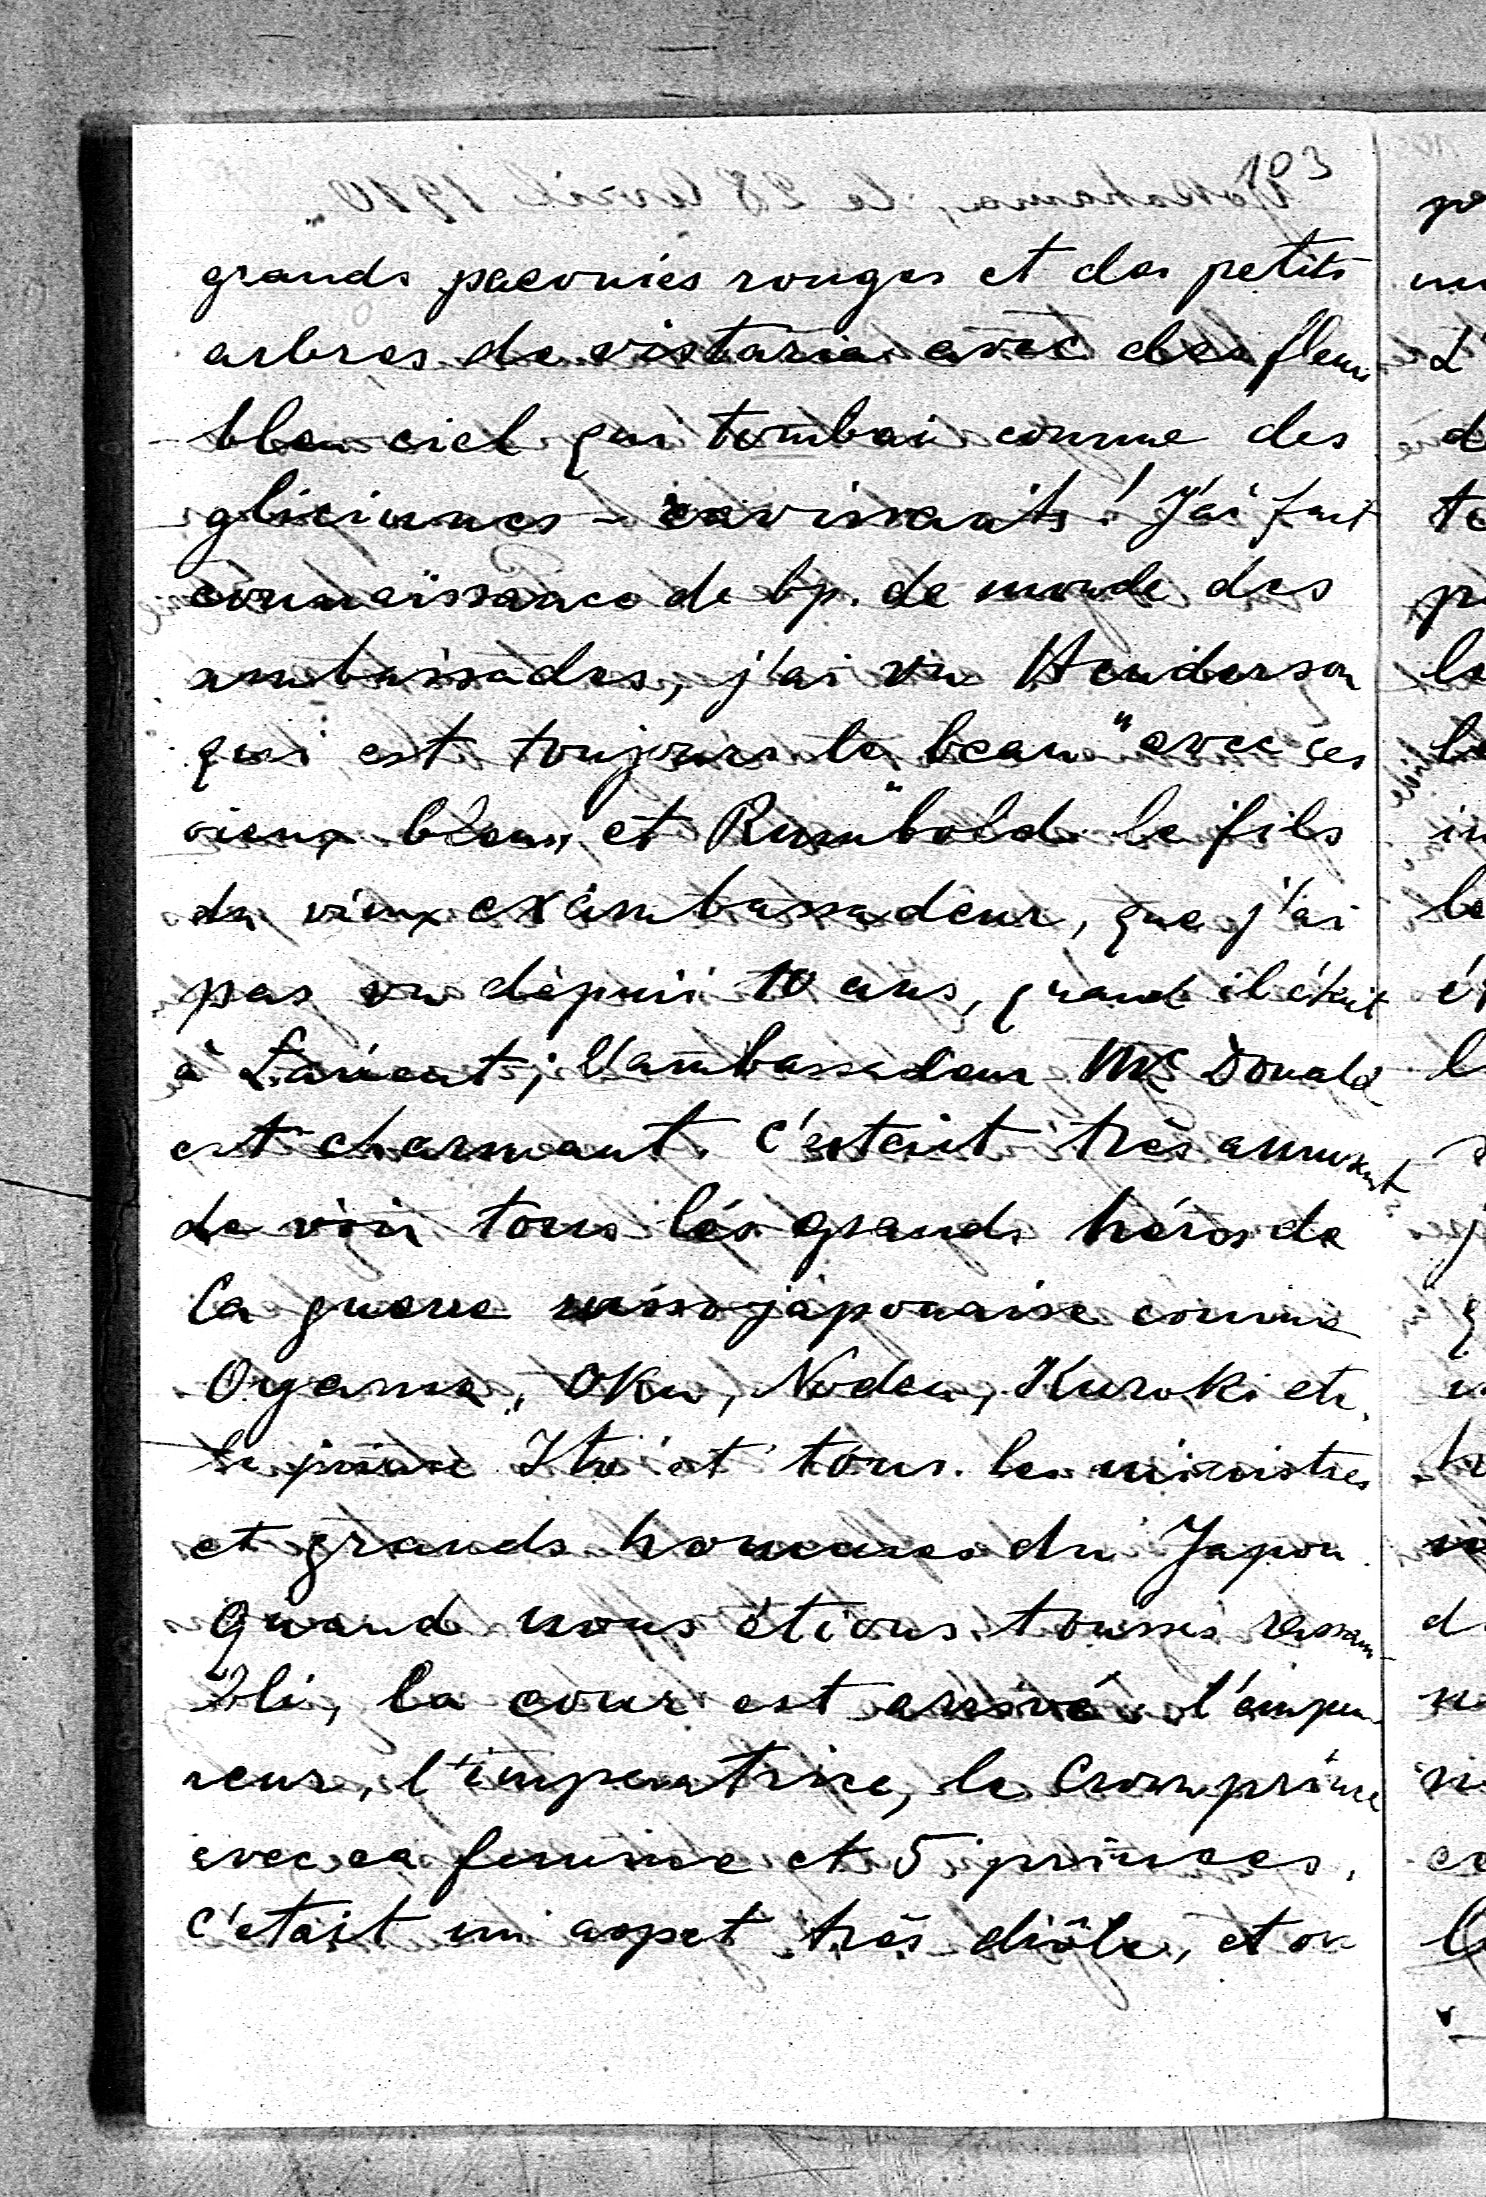 103
grands paeonies rouges et des petits
arbres de vistaria avec des fleurs
bleu ciel qui tombai comme des
glicinnes - ravissants! J'ai fait
connaissance de bp. de monde des
ambassades, j'ai vu Henderson
qui est toujours le "beau" avec ces
vieux bleux, et Rumbold le fils
du vieux exambassadeur, que j'ai
pas vu depuis 10 ans, quand il était
à ; l'ambassadeur Mc Donald
est charmant. C'estait très amusant
de voir tous les grands héros de
la guerre russojaponaise comme
Oyama, Oku, Nodzu, Kuroki etc.
le prince Ito et tous les ministres
et grands hommes du Japon.
Quand nous étions tousses rassem-
bli, la cour est arrivé: l'empe-
reur, l'imperatrice, le Crownprince
avec sa femme et 5 princes.
C'etait un aspet très drôle, et on